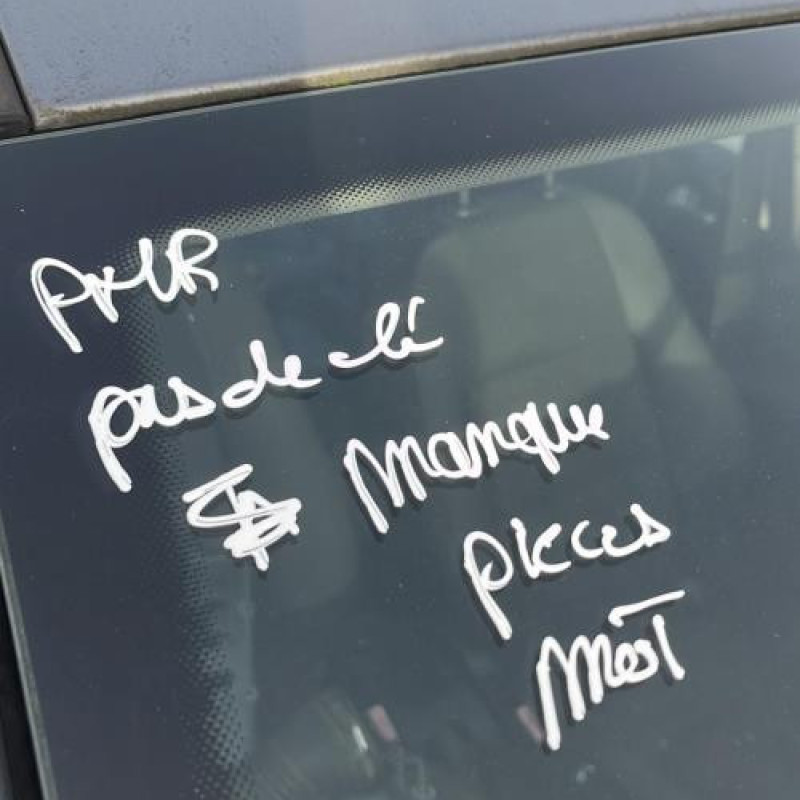 pas de clé
Manque
pieces
Mot